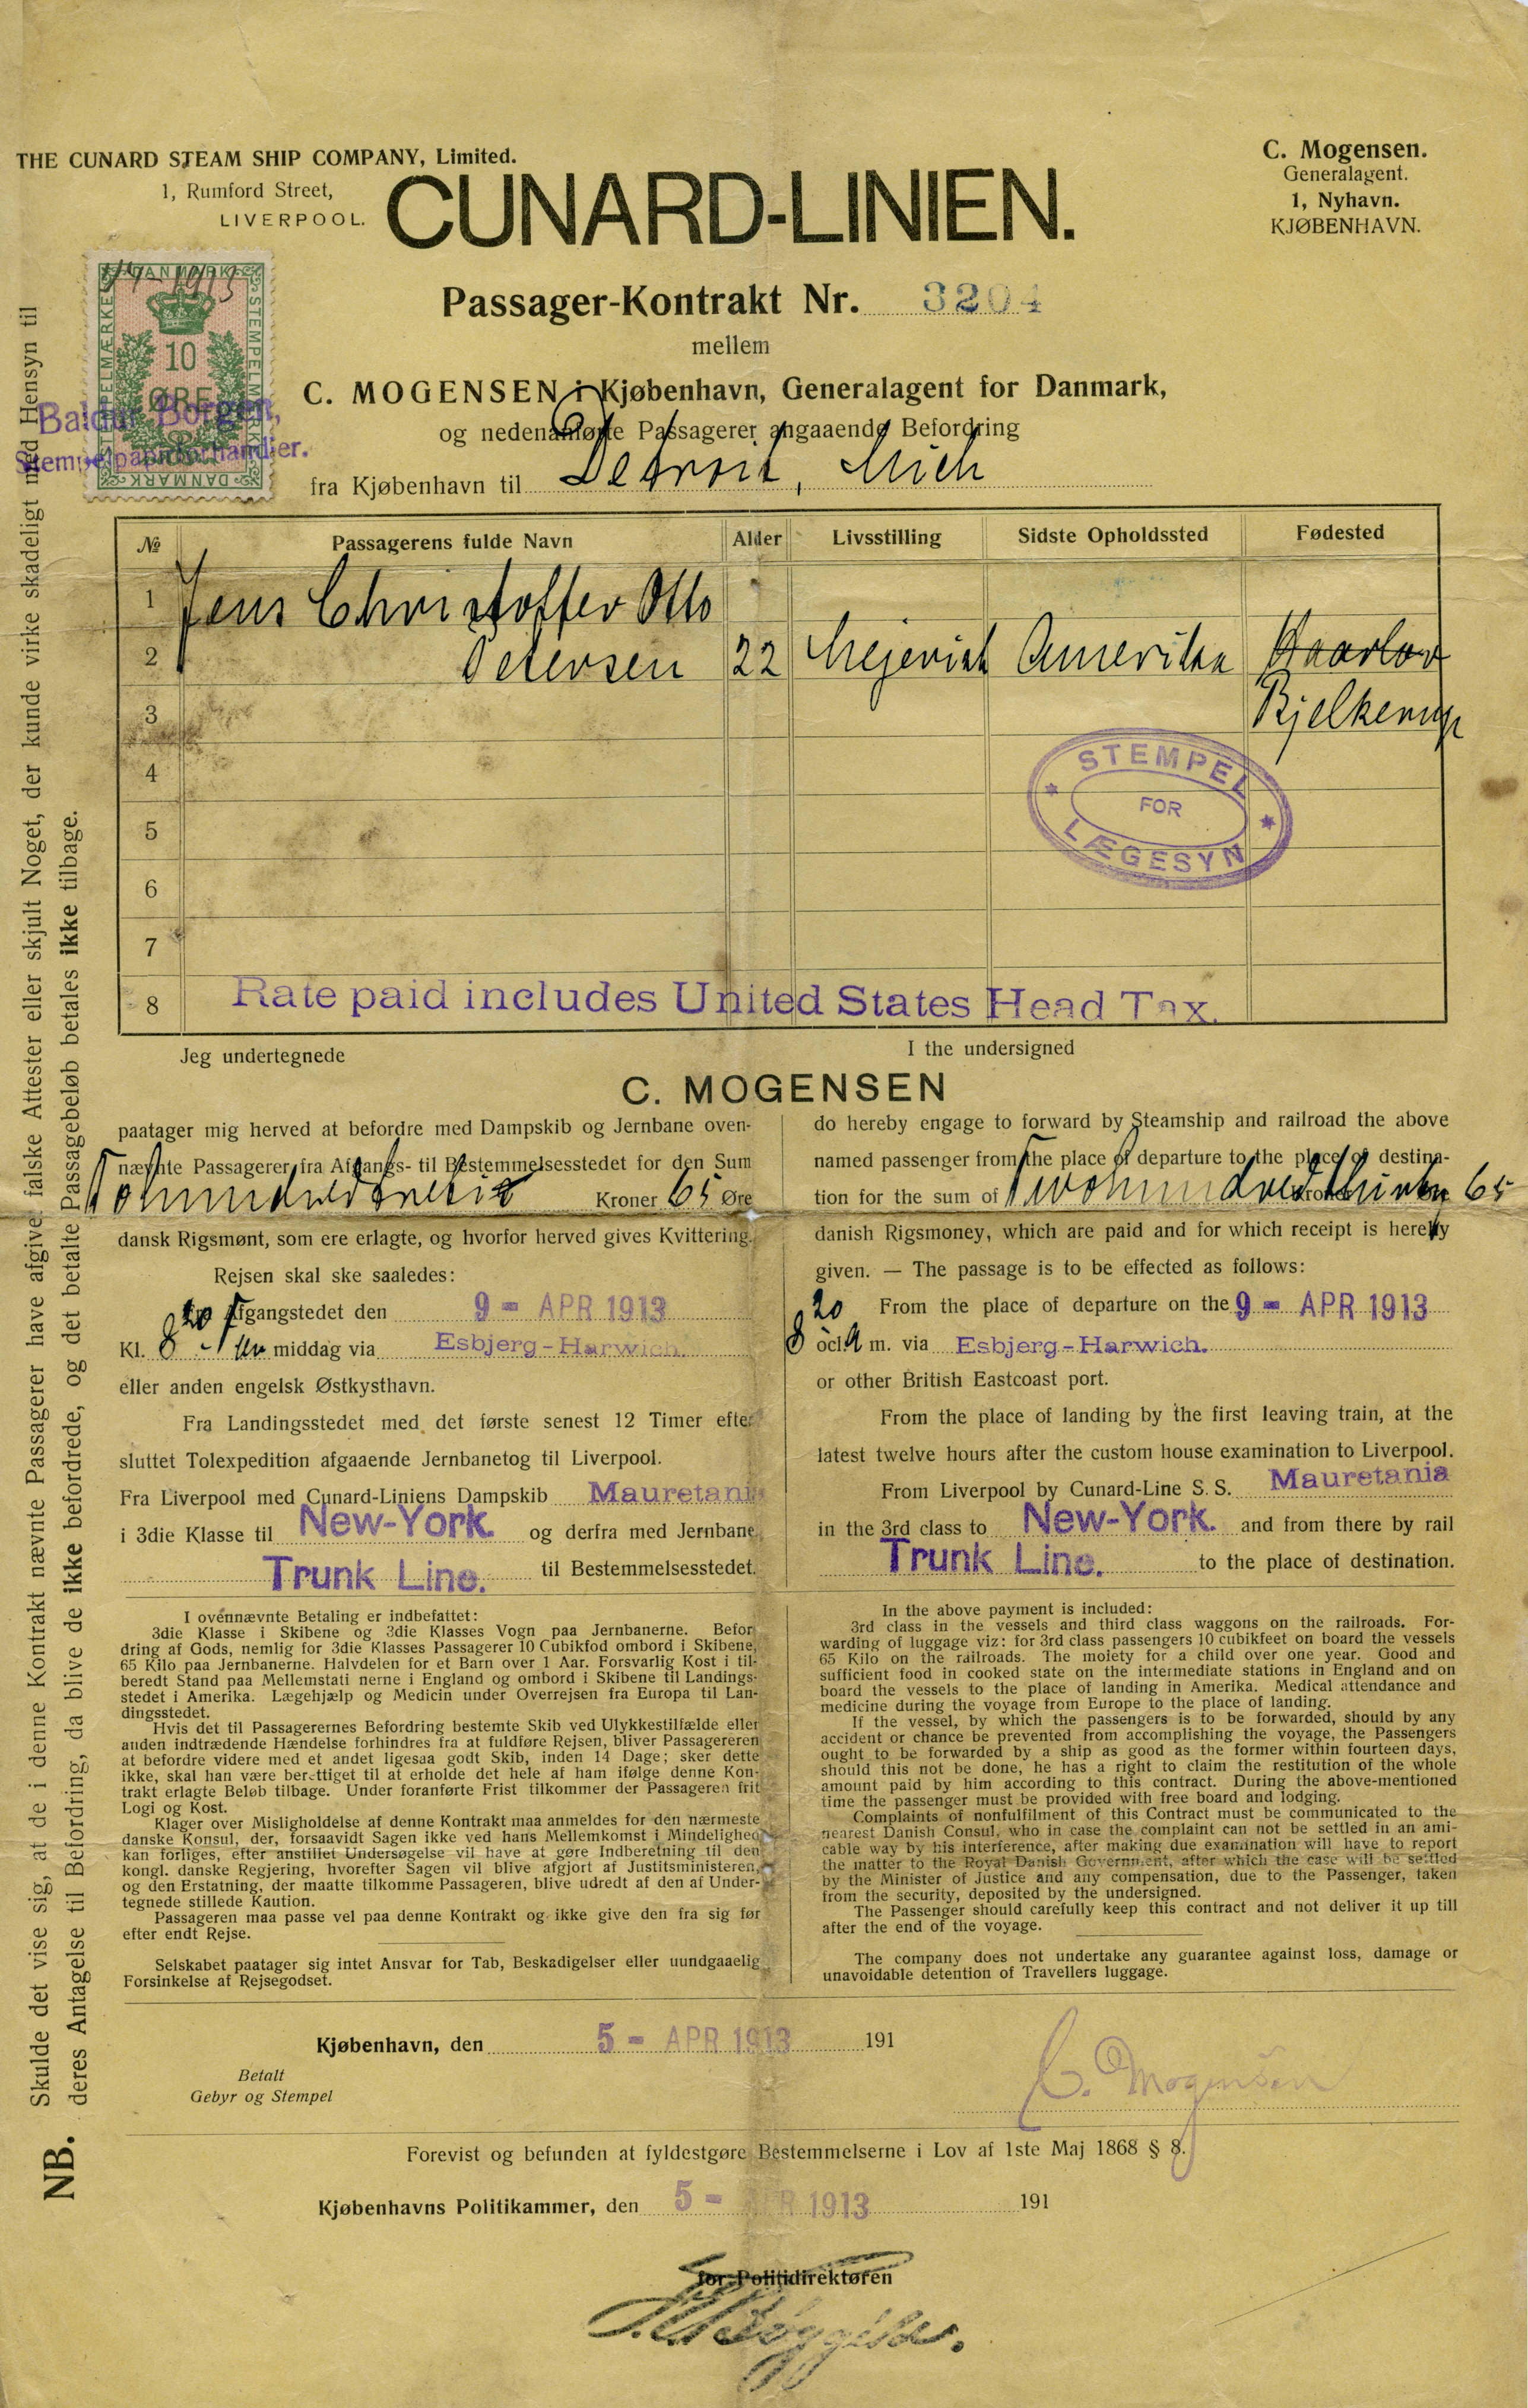 THE CUNARD STEAM SHIP COMPANY, Limited.
1, Rumford Street,
LIVERPOOL.
C. Mogensen.
Generalagent.
1, Nyhavn.
KJØBENHAVN.
CUNARD-LINIEN.
4/4 - 1913
DANMARK
STEMPELMÆRKE
STEMPELMÆRKE
10
ØRE
DANMARK
Baldur Borgen,
Stempelpapirforhandler.
Passager-Kontrakt Nr. 3204
mellem
C. MOGENSEN i Kjøbenhavn, Generalagent for Danmark,
og nedenanførte Passagerer angaaende Befordring
fra Kjøbenhavn til Detroit, Mich
№ Passagerens fulde Navn Alder Livsstilling Sidste Opholdssted Fødested
1 Jens Christoffer Otto
2 Petersen 22 Mejerist Amerika Haarlev
3 Bjelkerup
4
5
6
7
8 Rate paid includes United States Head Tax.
STEMPEL
FOR
LÆGESYN
Jeg undertegnede
I the undersigned
C. MOGENSEN
paatager mig herved at befordre med Dampskib og Jernbane oven-
nævnte Passagerer fra Afgangs- til Bestemmelsesstedet for den Sum
Tohundredtredive Kroner 65 Øre
dansk Rigsmønt, som ere erlagte, og hvorfor herved gives Kvittering.
Rejsen skal ske saaledes:
Fra Afgangstedet den 9 - APR 1913
Kl. 8 20 For middag via Esbjerg-Harwich.
eller anden engelsk Østkysthavn.
Fra Landingsstedet med det første senest 12 Timer efter
sluttet Tolexpedition afgaaende Jernbanetog til Liverpool.
Fra Liverpool med Cunard-Liniens Dampskib Mauretania
i 3die Klasse til New-York. og derfra med Jernbane
Trunk Line. til Bestemmelsesstedet.
do hereby engage to forward by Steamship and railroad the above
named passenger from the place of departure to the place of destina-
tion for the sum of Twohundredthirty Kroner 65
danish Rigsmoney, which are paid and for which receipt is hereby
given. — The passage is to be effected as follows:
From the place of departure on the 9 - APR 1913
8 20 ocl. a m. via Esbjerg-Harwich.
or other British Eastcoast port.
From the place of landing by the first leaving train, at the
latest twelve hours after the custom house examination to Liverpool.
From Liverpool by Cunard-Line S. S. Mauretania
in the 3rd class to New-York. and from there by rail
Trunk Line. to the place of destination.
I ovennævnte Betaling er indbefattet:
3die Klasse i Skibene og 3die Klasses Vogn paa Jernbanerne. Befor
dring af Gods, nemlig for 3die Klasses Passagerer 10 Cubikfod ombord i Skibene,
65 Kilo paa Jernbanerne. Halvdelen for et Barn over 1 Aar. Forsvarlig Kost i til-
beredt Stand paa Mellemstati nerne i England og ombord i Skibene til Landings-
stedet i Amerika. Lægehjælp og Medicin under Overrejsen fra Europa til Lan-
dingsstedet.
Hvis det til Passagerernes Befordring bestemte Skib ved Ulykkestilfælde eller
anden indtrædende Hændelse forhindres fra at fuldføre Rejsen, bliver Passagereren
at befordre videre med et andet ligesaa godt Skib, inden 14 Dage; sker dette
ikke, skal han være berettiget til at erholde det hele af ham ifølge denne Kon-
trakt erlagte Beløb tilbage. Under foranførte Frist tilkommer der Passageren frit
Logi og Kost.
Klager over Misligholdelse af denne Kontrakt maa anmeldes for den nærmeste
danske Konsul, der, forsaavidt Sagen ikke ved hans Mellemkomst i Mindelighed
kan forliges, efter anstillet Undersøgelse vil have at gøre Indberetning til den
kongl. danske Regjering, hvorefter Sagen vil blive afgjort af Justitsministeren,
og den Erstatning, der maatte tilkomme Passageren, blive udredt af den af Under-
tegnede stillede Kaution.
Passageren maa passe vel paa denne Kontrakt og ikke give den fra sig før
efter endt Rejse.
Selskabet paatager sig intet Ansvar for Tab, Beskadigelser eller uundgaaelig
Forsinkelse af Rejsegodset.
In the above payment is included:
3rd class in the vessels and third class waggons on the railroads. For-
warding of luggage viz: for 3rd class passengers 10 cubikfeet on board the vessels
65 Kilo on the railroads. The moiety for a child over one year. Good and
sufficient food in cooked state on the intermediate stations in England and on
board the vessels to the place of landing in Amerika. Medical attendance and
medicine during the voyage from Europe to the place of landing.
If the vessel, by which the passengers is to be forwarded, should by any
accident or chance be prevented from accomplishing the voyage, the Passengers
ought to be forwarded by a ship as good as the former within fourteen days,
should this not be done, he has a right to claim the restitution of the whole
amount paid by him according to this contract. During the above-mentioned
time the passenger must be provided with free board and lodging.
Complaints of nonfulfilment of this Contract must be communicated to the
nearest Danish Consul, who in case the complaint can not be settled in an ami-
cable way by his interference, after making due examination will have to report
the matter to the Royal Danish Government, after which the case will be settled
by the Minister of Justice and any compensation, due to the Passenger, taken
from the security, deposited by the undersigned.
The Passenger should carefully keep this contract and not deliver it up till
after the end of the voyage.
The company does not undertake any guarantee against loss, damage or
unavoidable detention of Travellers luggage.
Kjøbenhavn, den 5 - APR 1913 191
Betalt
Gebyr og Stempel
C. Mogensen
Forevist og befunden at fyldestgøre Bestemmelserne i Lov af 1ste Maj 1868 § 8.
Kjøbenhavns Politikammer, den 5 - APR 1913 191
for Politidirektøren
NB. Skulde det vise sig, at de i denne Kontrakt nævnte Passagerer have afgivet falske Attester eller skjult Noget, der kunde virke skadeligt med Hensyn til
deres Antagelse til Befordring, da blive de ikke befordrede, og det betalte Passagebeløb betales ikke tilbage.